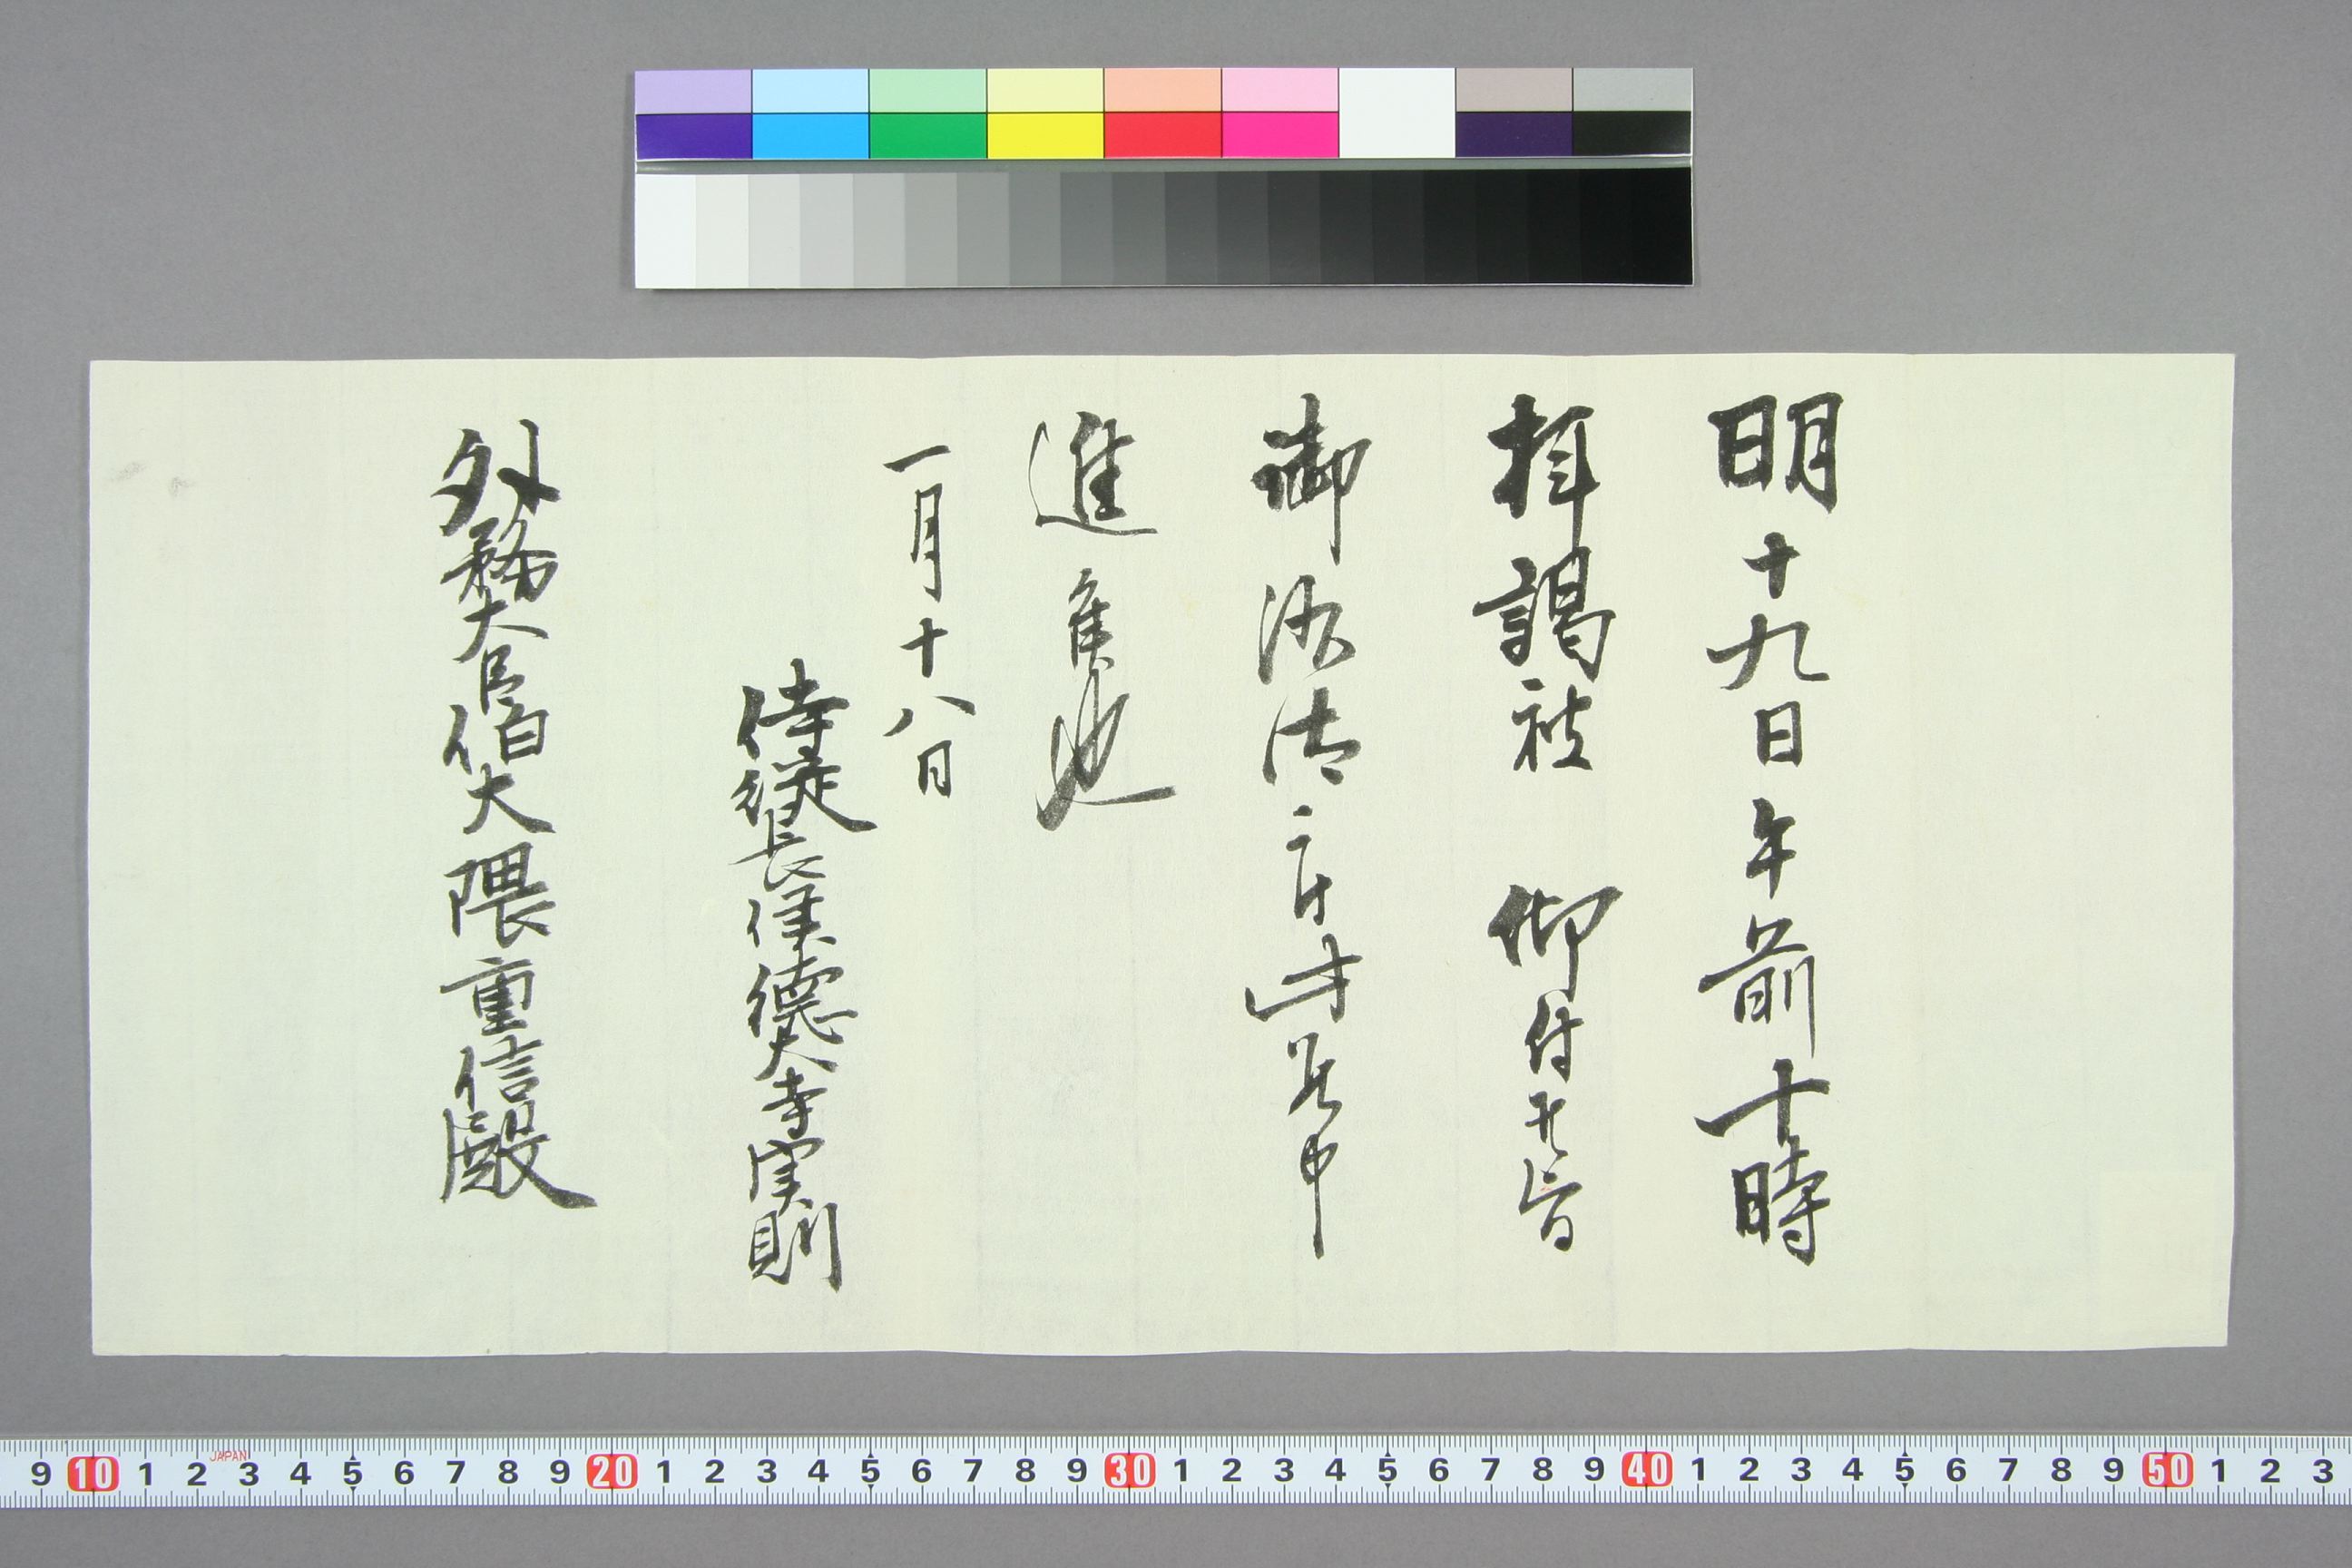 明十九日午前十時
拝謁被　仰付候旨
御沙汰ニ付此段申
進候也
一月十八日
侍従長侯徳大寺実則
外務大臣伯大隈重信殿
JAPAN
9 10 1 2 3 4 5 6 7 8 9 20 1 2 3 4 5 6 7 8 9 30 1 2 3 4 5 6 7 8 9 40 1 2 3 4 5 6 7 8 9 50 1 2 3